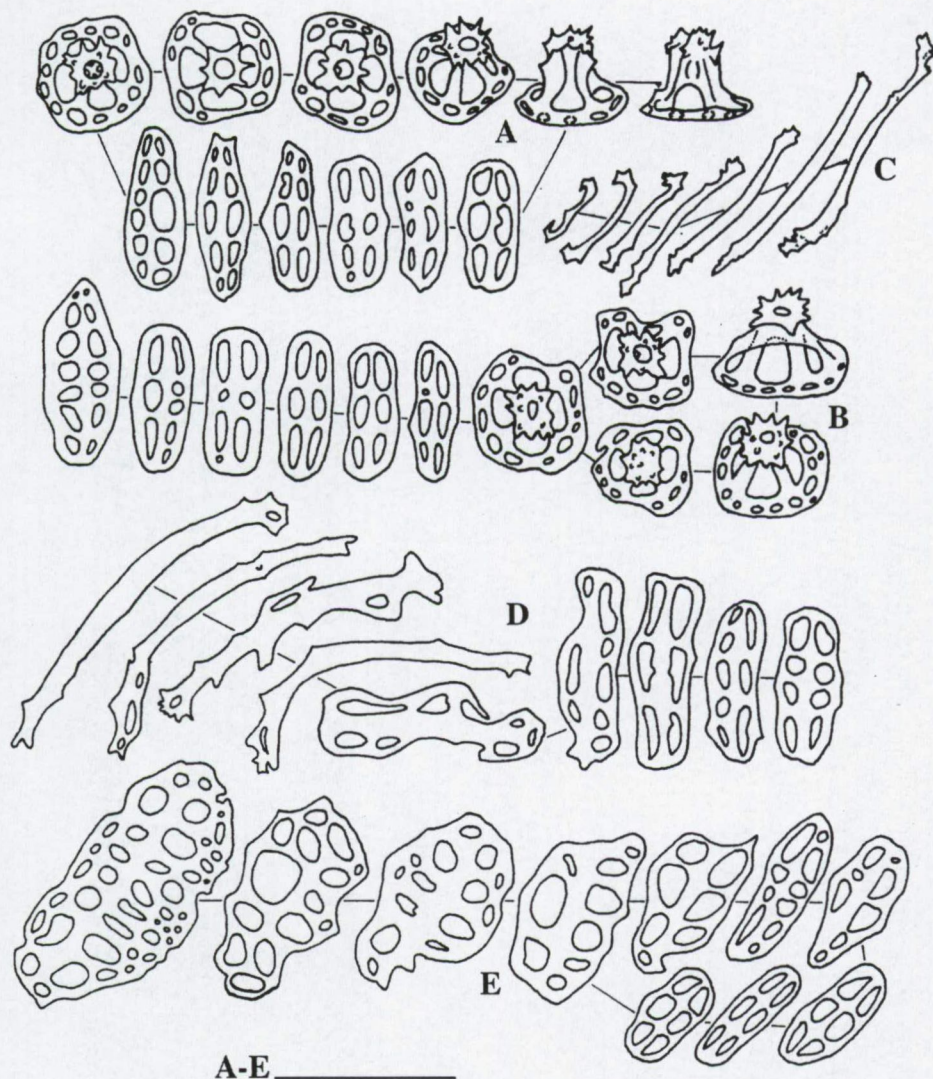 A
C
B
D
E
A-E